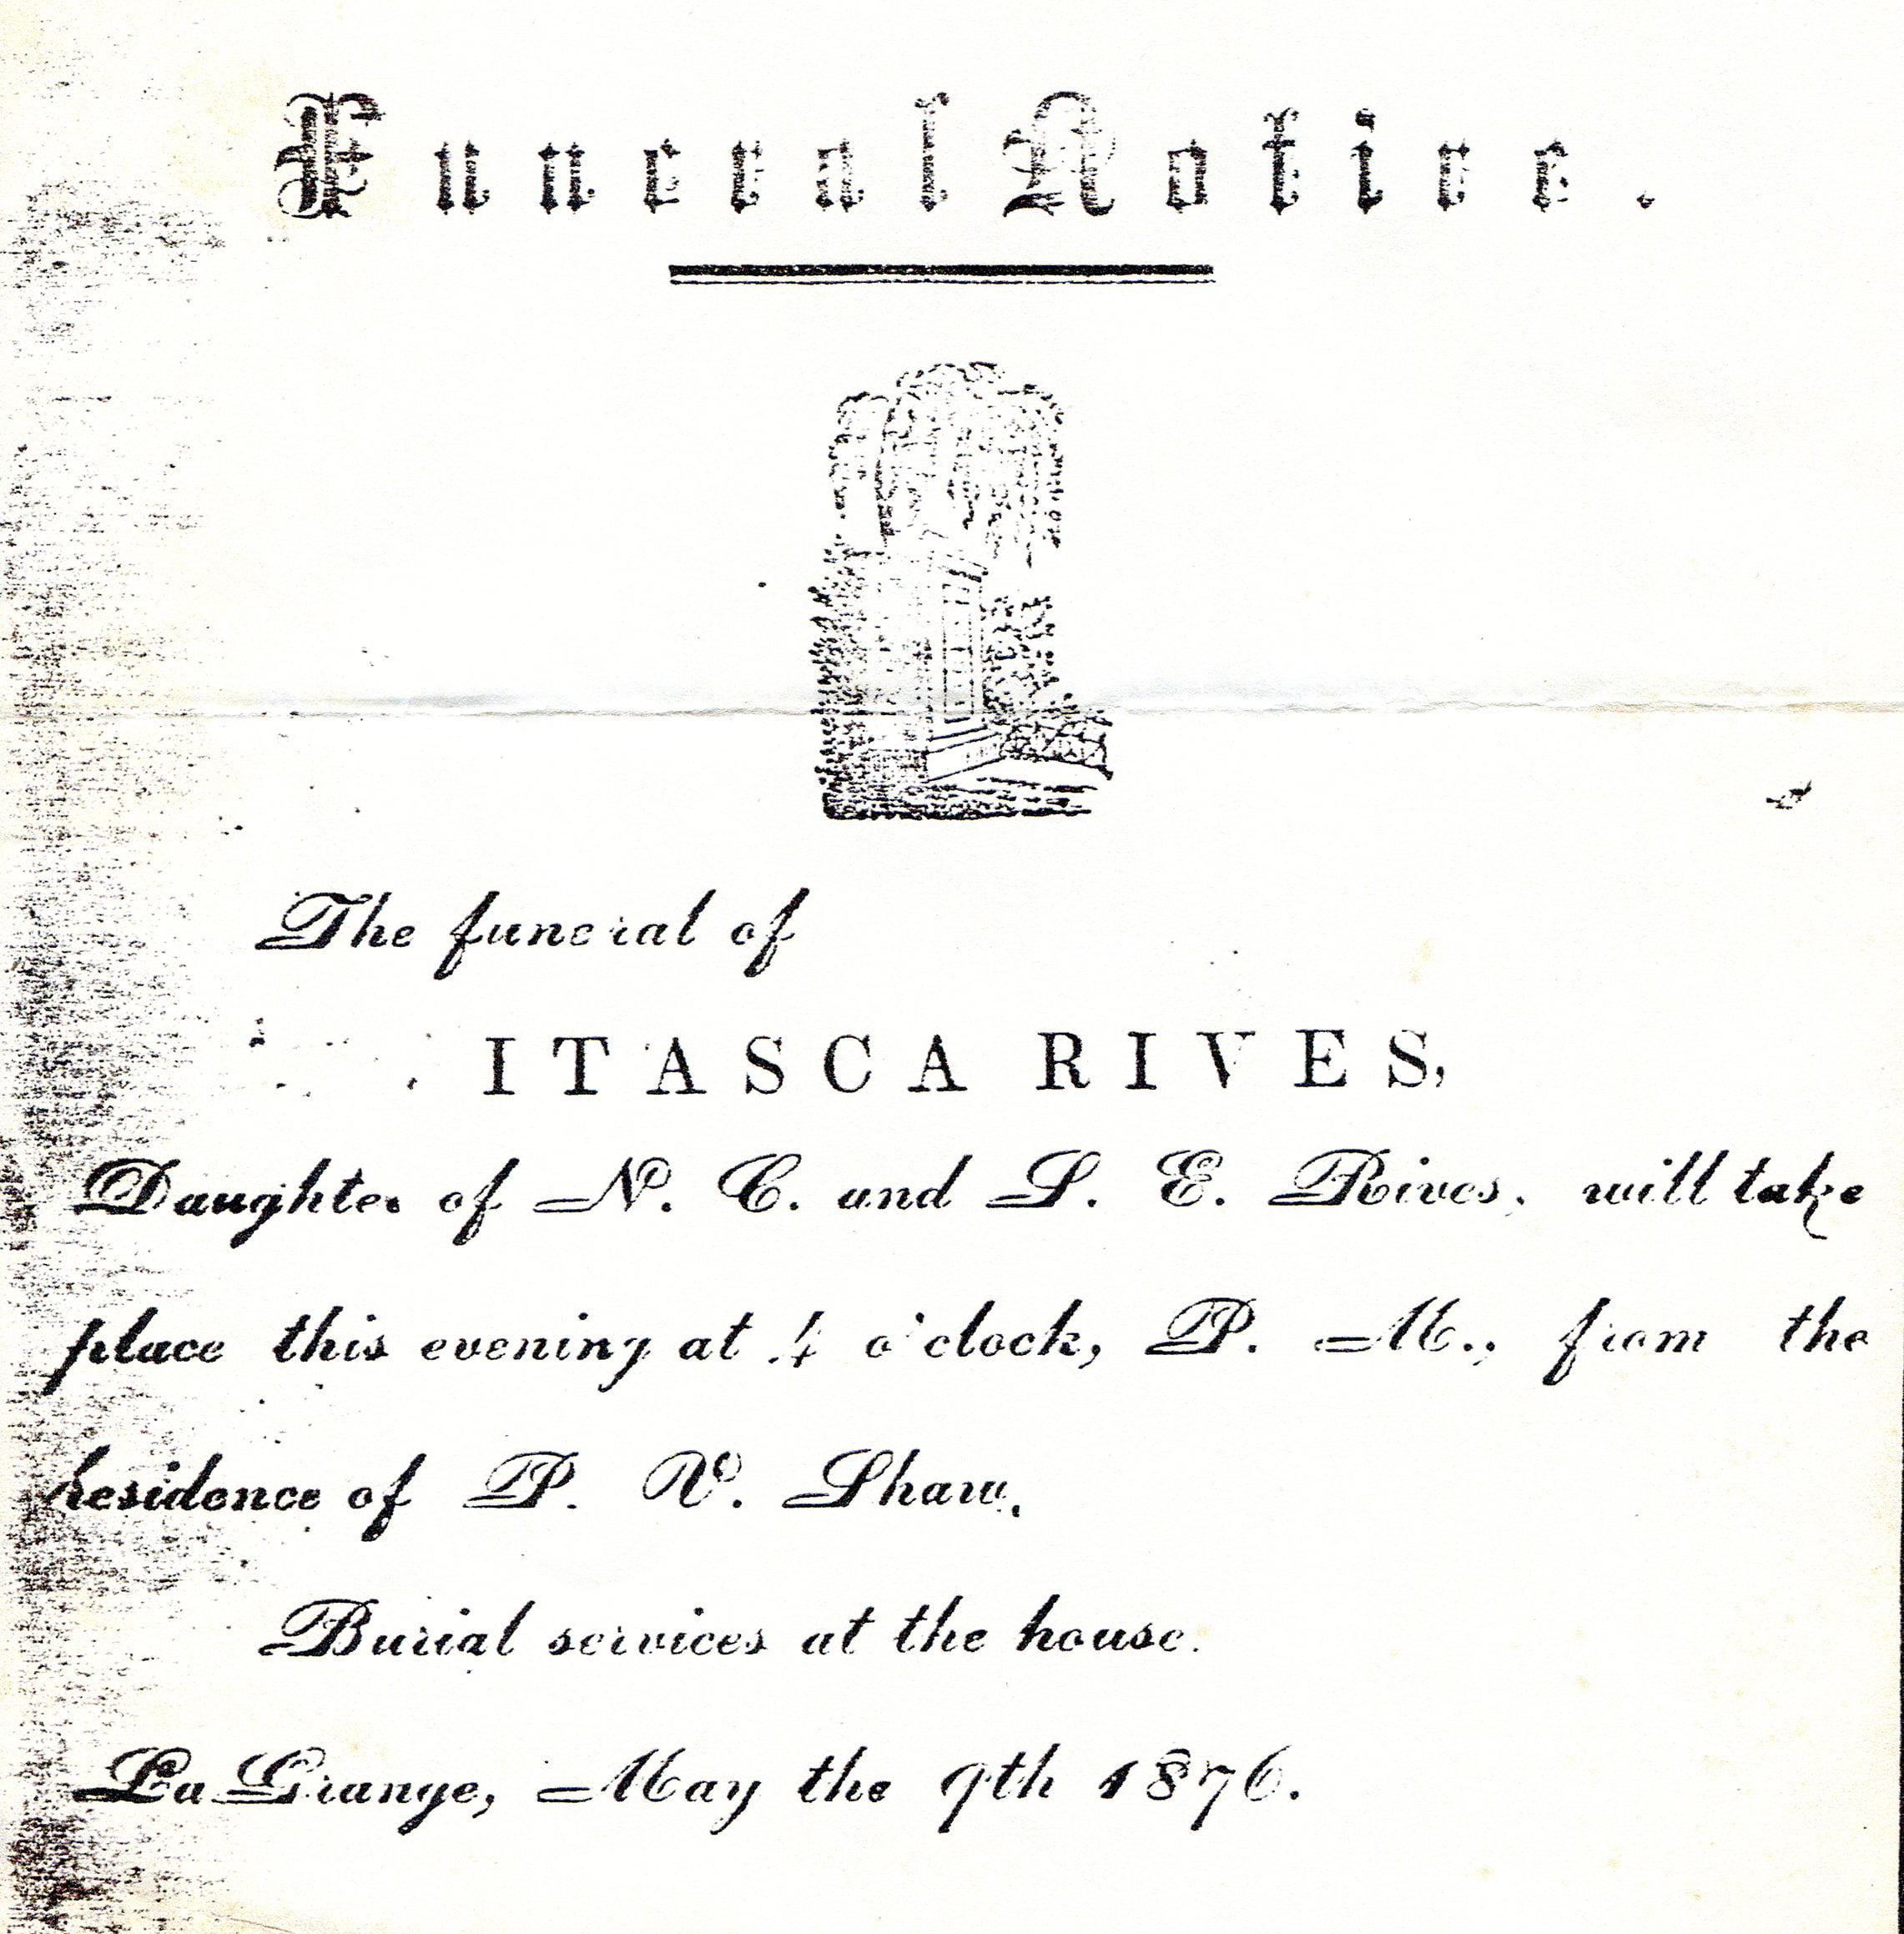 Funeral Notice.
The funeral of
ITASCA RIVES,
Daughter of N. C. and S. E. Rives, will take
place this evening at 4 o'clock, P. M., from the
residence of P. V. Shaw.
Burial services at the house.
La Grange, May the 9th 1876.